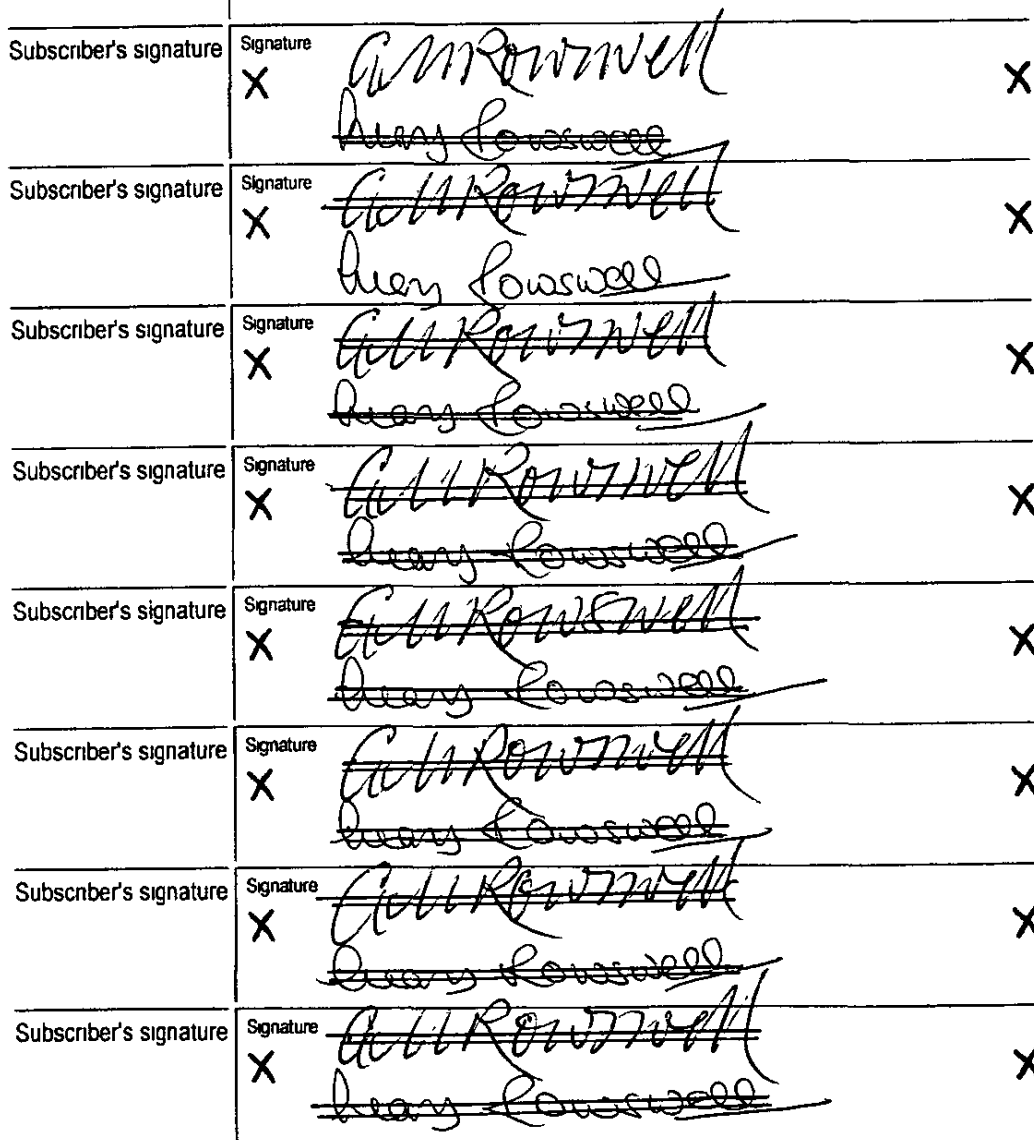 Subscriber's signature Signature
X GMRowswell X
Rowswell
Subscriber's signature Signature
X GMRowswell X
Rowswell
Subscriber's signature Signature
X GMRowswell X
Rowswell
Subscriber's signature Signature
X GMRowswell X
Rowswell
Subscriber's signature Signature
X GMRowswell X
Rowswell
Subscriber's signature Signature
X GMRowswell X
Rowswell
Subscriber's signature Signature
X GMRowswell X
Rowswell
Subscriber's signature Signature
X GMRowswell X
Rowswell